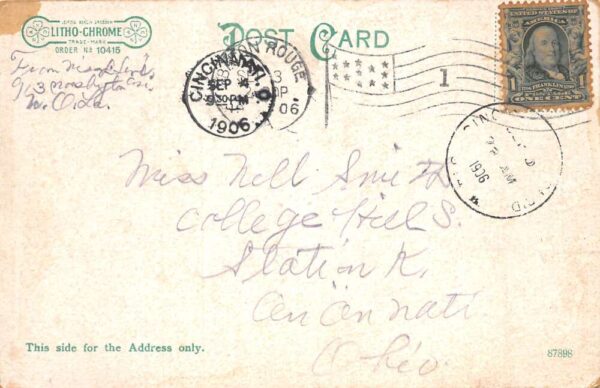 LITHO-CHROME
TRADE-MARK
ORDER No 10415
POST CARD
From
913
N.O. La.
BATON ROUGE
3
06
CINCINNATI, O.
SEP 4
9:30 PM
1906
1
UNITED STATES OF AMERICA
FRANKLIN
1 ONE CENT 1
AM
1906
Miss Nell Smith
College Hill S.
Station K.
Cincinnati
Ohio
This side for the Address only.
87898